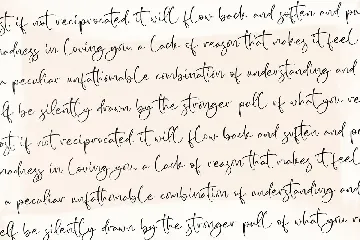 st if not reciprocated it will flow back and soften and pu
madness in loving you a lack of reason that makes it feel
a peculiar unfathomable combination of understanding and
elf be silently drawn by the stronger pull of what you re
ost if not reciprocated it will flow back and soften and pu
madness in loving you a lack of reason that makes it feel
a peculiar unfathomable combination of understanding and
elf be silently drawn by the stronger pull of what you re